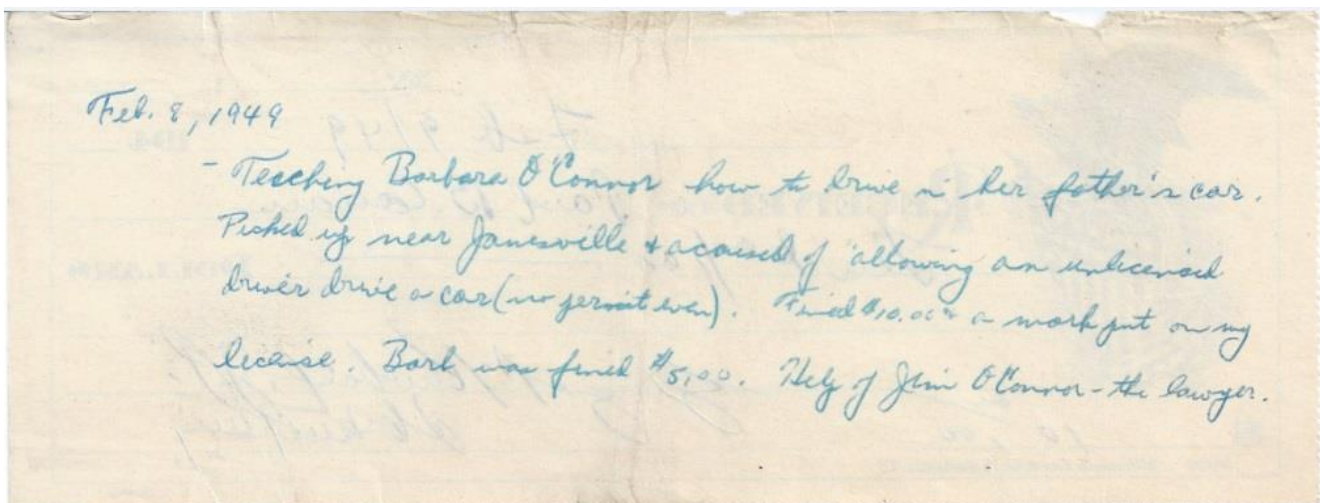 Feb. 8, 1949
- Teaching Barbara O'Connor how to drive in her father's car.
Picked up near Janesville & accused of "allowing an unlicensed
driver drive a car (no permit even). Fined $10.00 & a mark put on my
license. Barb was fined $5.00. Help of Jim O'Connor - the lawyer.